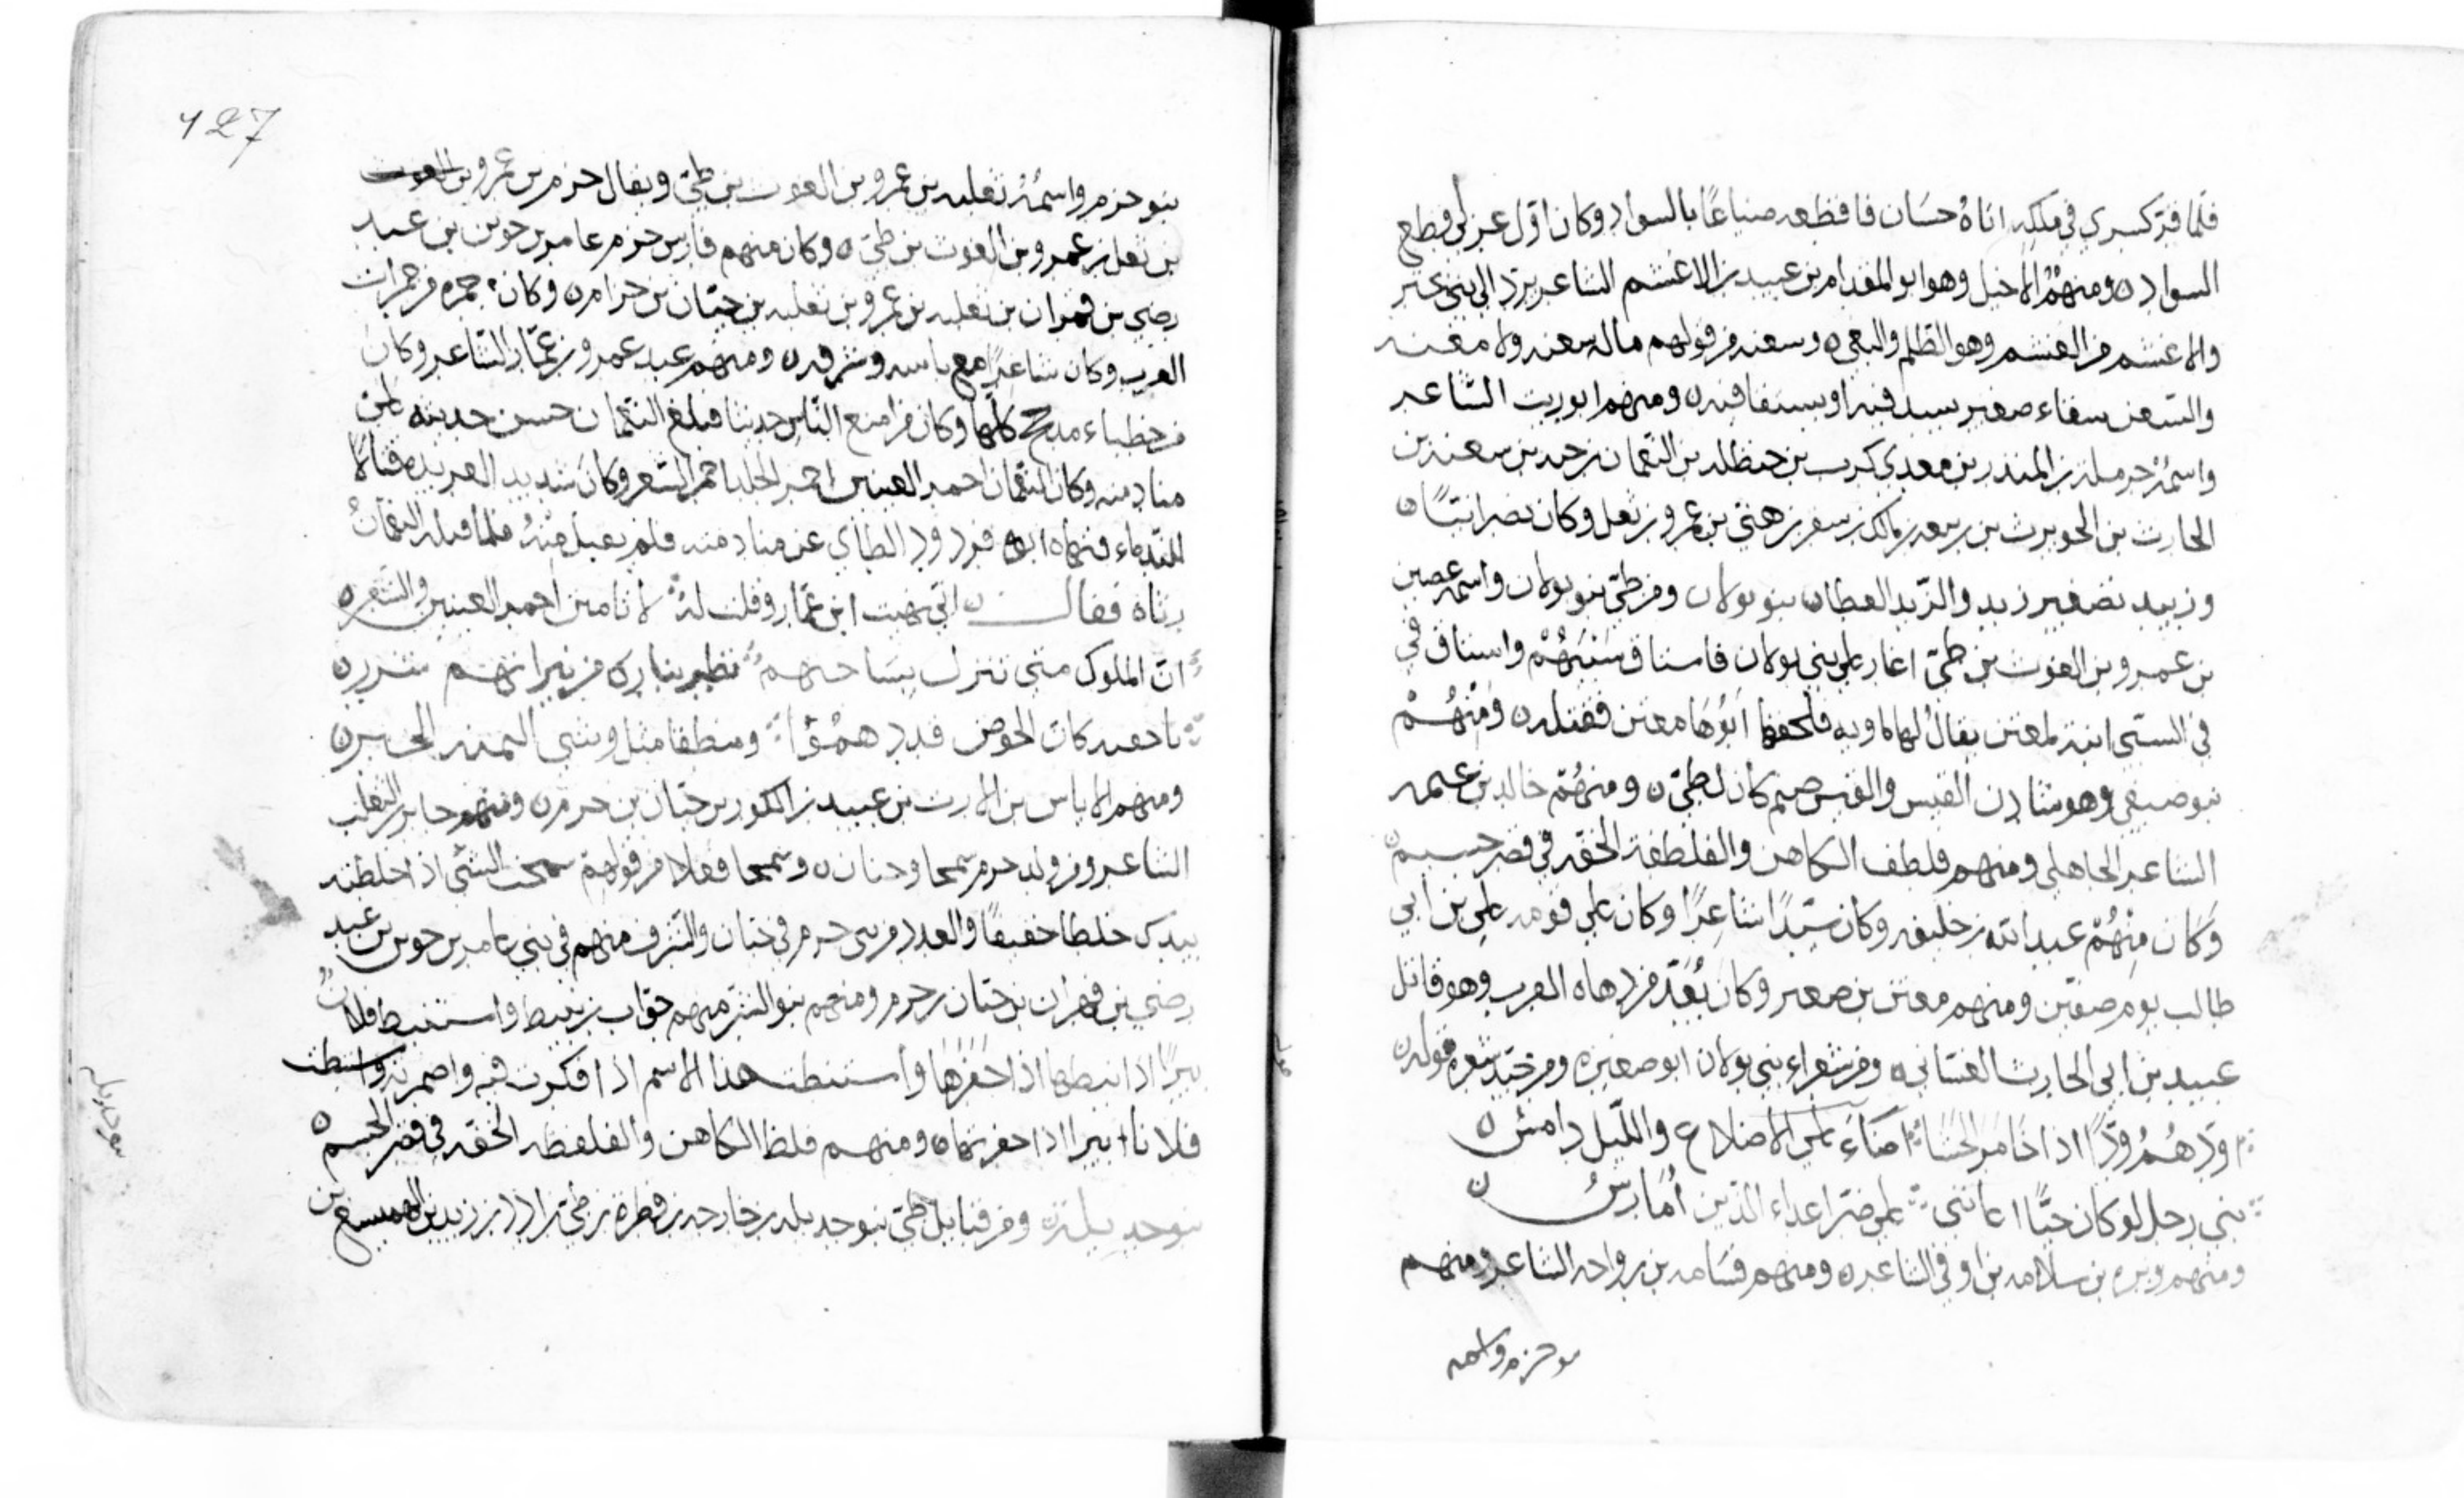 فلما قر كسرى في ملكه اتاه حسان فاقطعه ضياعًا بالسواد وكان اول عربي قطع
السواد ومنهم الاخيل وهو ابو المقدام بن عبيد بن الاغشم الشاعر يرد الى بني
والاغشم من الغشم وهو الظلم والبغي وسعنه من قولهم ماله سعنه ولا معنه
والسعن سقاء صغير ينبذ فيه او يستقا فيه ومنهم ابو زبيد الشاعر
واسمه حرملة بن المنذر بن معدي كرب بن حنظله بن النعمان بن حيه بن سعنه بن
الحارث بن الحويرث بن ربيعه بن مالك بن سفر بن هني بن عمرو بن ثعل وكان نصرانيًا
وزبيد تصغير زبد والزبد العطا بنو بولان ومن طيّ بنو بولان واسمه غصين
بن عمرو بن الغوث بن طيّ اغار على بني بولان فاستاق سبيهم واستاق في
في السبي ابنة لمعتر يقال لها ماويه فلحقها ابوها معتر فقتله ومنهم
بنو صيفي وهو سادن الفلس والفلس صنم كان لطيّ ومنهم خالد بن عنمه
الشاعر الجاهلي ومنهم قلطف الكاهن والقلطفة الخفه في قصر جسم
وكان منهم عبد الله بن خليفه وكان سيدًا شاعرًا وكان على قومه علي بن ابي
طالب يوم صفين ومنهم معتر بن وكان يعد من دهاه العرب وهو قاتل
عبيد بن ابي الحارث الغساني ومن شعراء بني بولان ابو صعتره ومن جيد شعره قوله
اضاء على الاضلاع والليل دامس
بني رجل لو كان حيًّا اعانني على ضر اعداء الذين امارس
ومنهم وبره بن سلامه بن اوفى الشاعر ومنهم قسامه بن رواحه الشاعر ومنهم
بنو حزم واسمه
127
بنو حزم واسمه ثعلبه بن عمرو بن الغوث بن طيّ ويقال حزم بن عمرو بن الغوث
بن ثعل بن عمرو بن الغوث بن طيّ وكان منهم فارس حزم عامر بن جوين بن عبد
رضى بن قمران بن ثعلبه بن عمرو بن ثعلبه بن حيّان بن حزم وكان جمره من جمرات
العرب وكان شاعرًا مع باسه وشرفه ومنهم عبد عمرو بن عمّار الشاعر وكان
من خطباء مذحج كلها وكان من امتع الناس حديثا فبلغ النعمان حسن حديثه
منادمته وكان النعمان احمر العينين احمر الجلد احمر الشعر وكان شديد العربده قتالا
للندماء فنهاه ابو قردود الطاي عن منادمته فلم يقبل منه فلما قتله النعمان
رثاه فقال اني نهيت ابن عمّار وقلت له لا تامنن احمر العينين والشعره
ان الملوك متى تنزل بساحتهم تطير بنارك من نيرانهم شرره
يا جفنه كازاء الحوض قد هدموا ومنطقا مثل وشي اليمنه الحبره
ومنهم الاياس بن الارت بن عبيد بن الكور بن حيّان بن حرم ومنهم جابر بن الثعلب
الشاعر ومن ولد حرم شمجا وحيان وشمجا فعلا من قولهم شمجت الشي اذا خلطته
بيدك خلطا خفيفًا والعدد من بني حرم في حيان والشرف منهم في بني عامر بن جوين بن عبد
رضى بن قمران بن حيّان بن حرم ومنهم بنو منهم جوّاب بن نبيط واستنبط فلانٌ
بيرًا اذا نبطها اذا حفرها واستنبطت هذا الاسم اذا فكرت فيه واضمرته واستنبطت
فلانا بيرا اذا حفرتماه ومنهم قلطف الكاهن والقلطفه الخفه في قصر الجسم
بنو جديلة ومن قبايل طيّ بنو جديله بن خارجه بن فطره بن طيّ بن ادد بن زيد بن الهميسع بن
بنو جديله